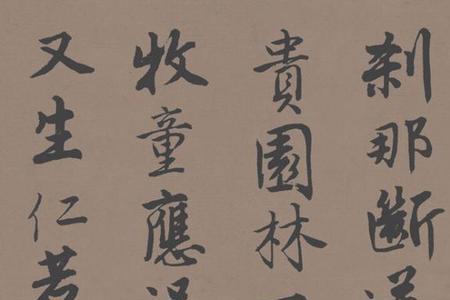 刹那断
貴園林
牧童應
又生仁若